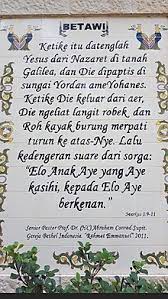 BETAWI
Ketike itu datenglah
Yesus dari Nazaret di tanah
Galilea, dan Die dipaptis di
sungai Yordan ameYohanes.
Ketike Die keluar dari aer,
Die ngeliat langit robek, dan
Roh kayak burung merpati
turun ke atas-Nye. Lalu
kedengeran suare dari sorga:
"Elo Anak Aye yang Aye
kasihi, kepada Elo Aye
berkenan."
Markus 1:9-11
Senior Pastor Prof. Dr. (HC) Abraham Conrad Supit
Gereja Bethel Indonesia "Rahmat Emmanuel" 2011.